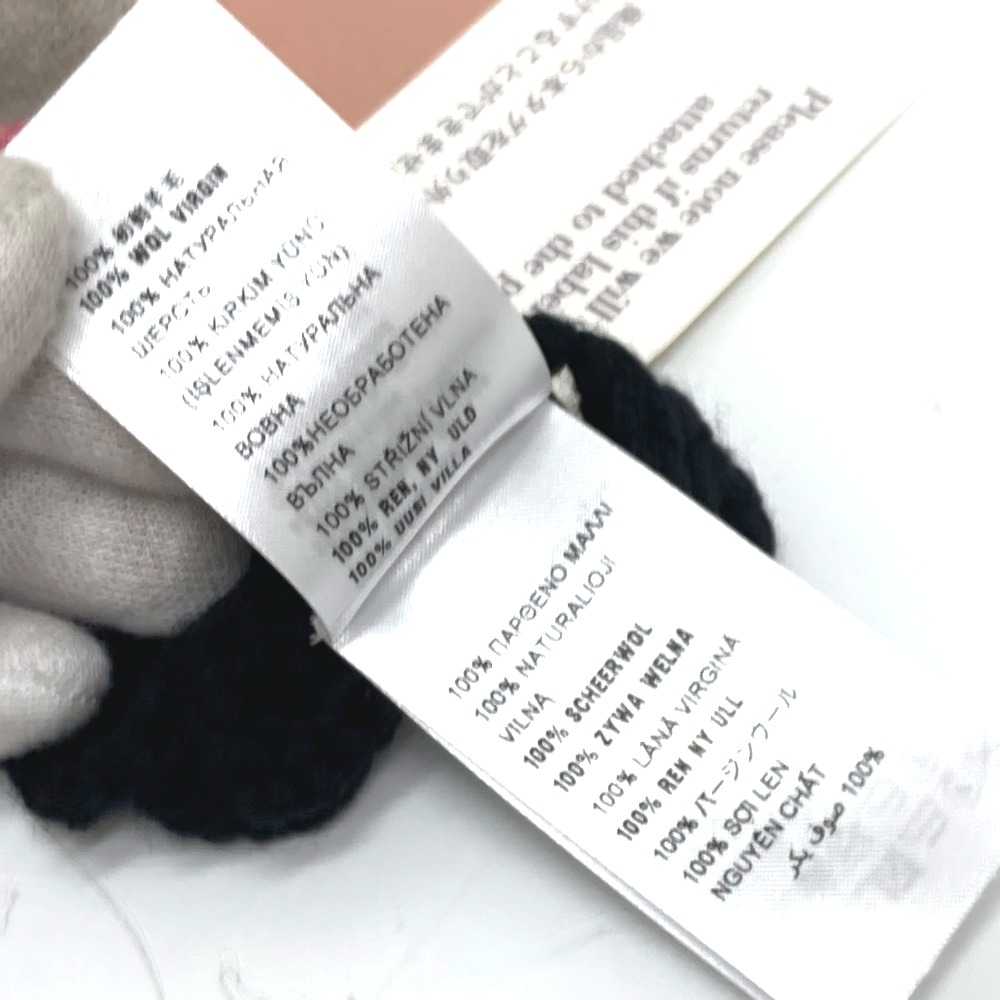 100% WOL VIRGIN
100% НАТУРАЛЬНАЯ
ШЕРСТЬ
100% KIRKIM YÜNÜ
(İŞLENMEMİŞ YÜN)
100% НАТУРАЛЬНА
ВОВНА
100%НЕОБРАБОТЕНА
ВЪЛНА
100% STŘIŽNÍ VLNA
100% REN, NY ULD
100% UUSI VILLA
100% ΠΑΡΘΕΝΟ ΜΑΛΛΙ
100% NATURALIOJI
VILNA
100% SCHEERWOL
100% ZYWA WELNA
100% LÂNĂ VIRGINA
100% REN NY ULL
100% バージンウール
100% SỢI LEN
NGUYÊN CHẤT
100% صوف بكر
Please note we will
returns if this labe
attached to the p